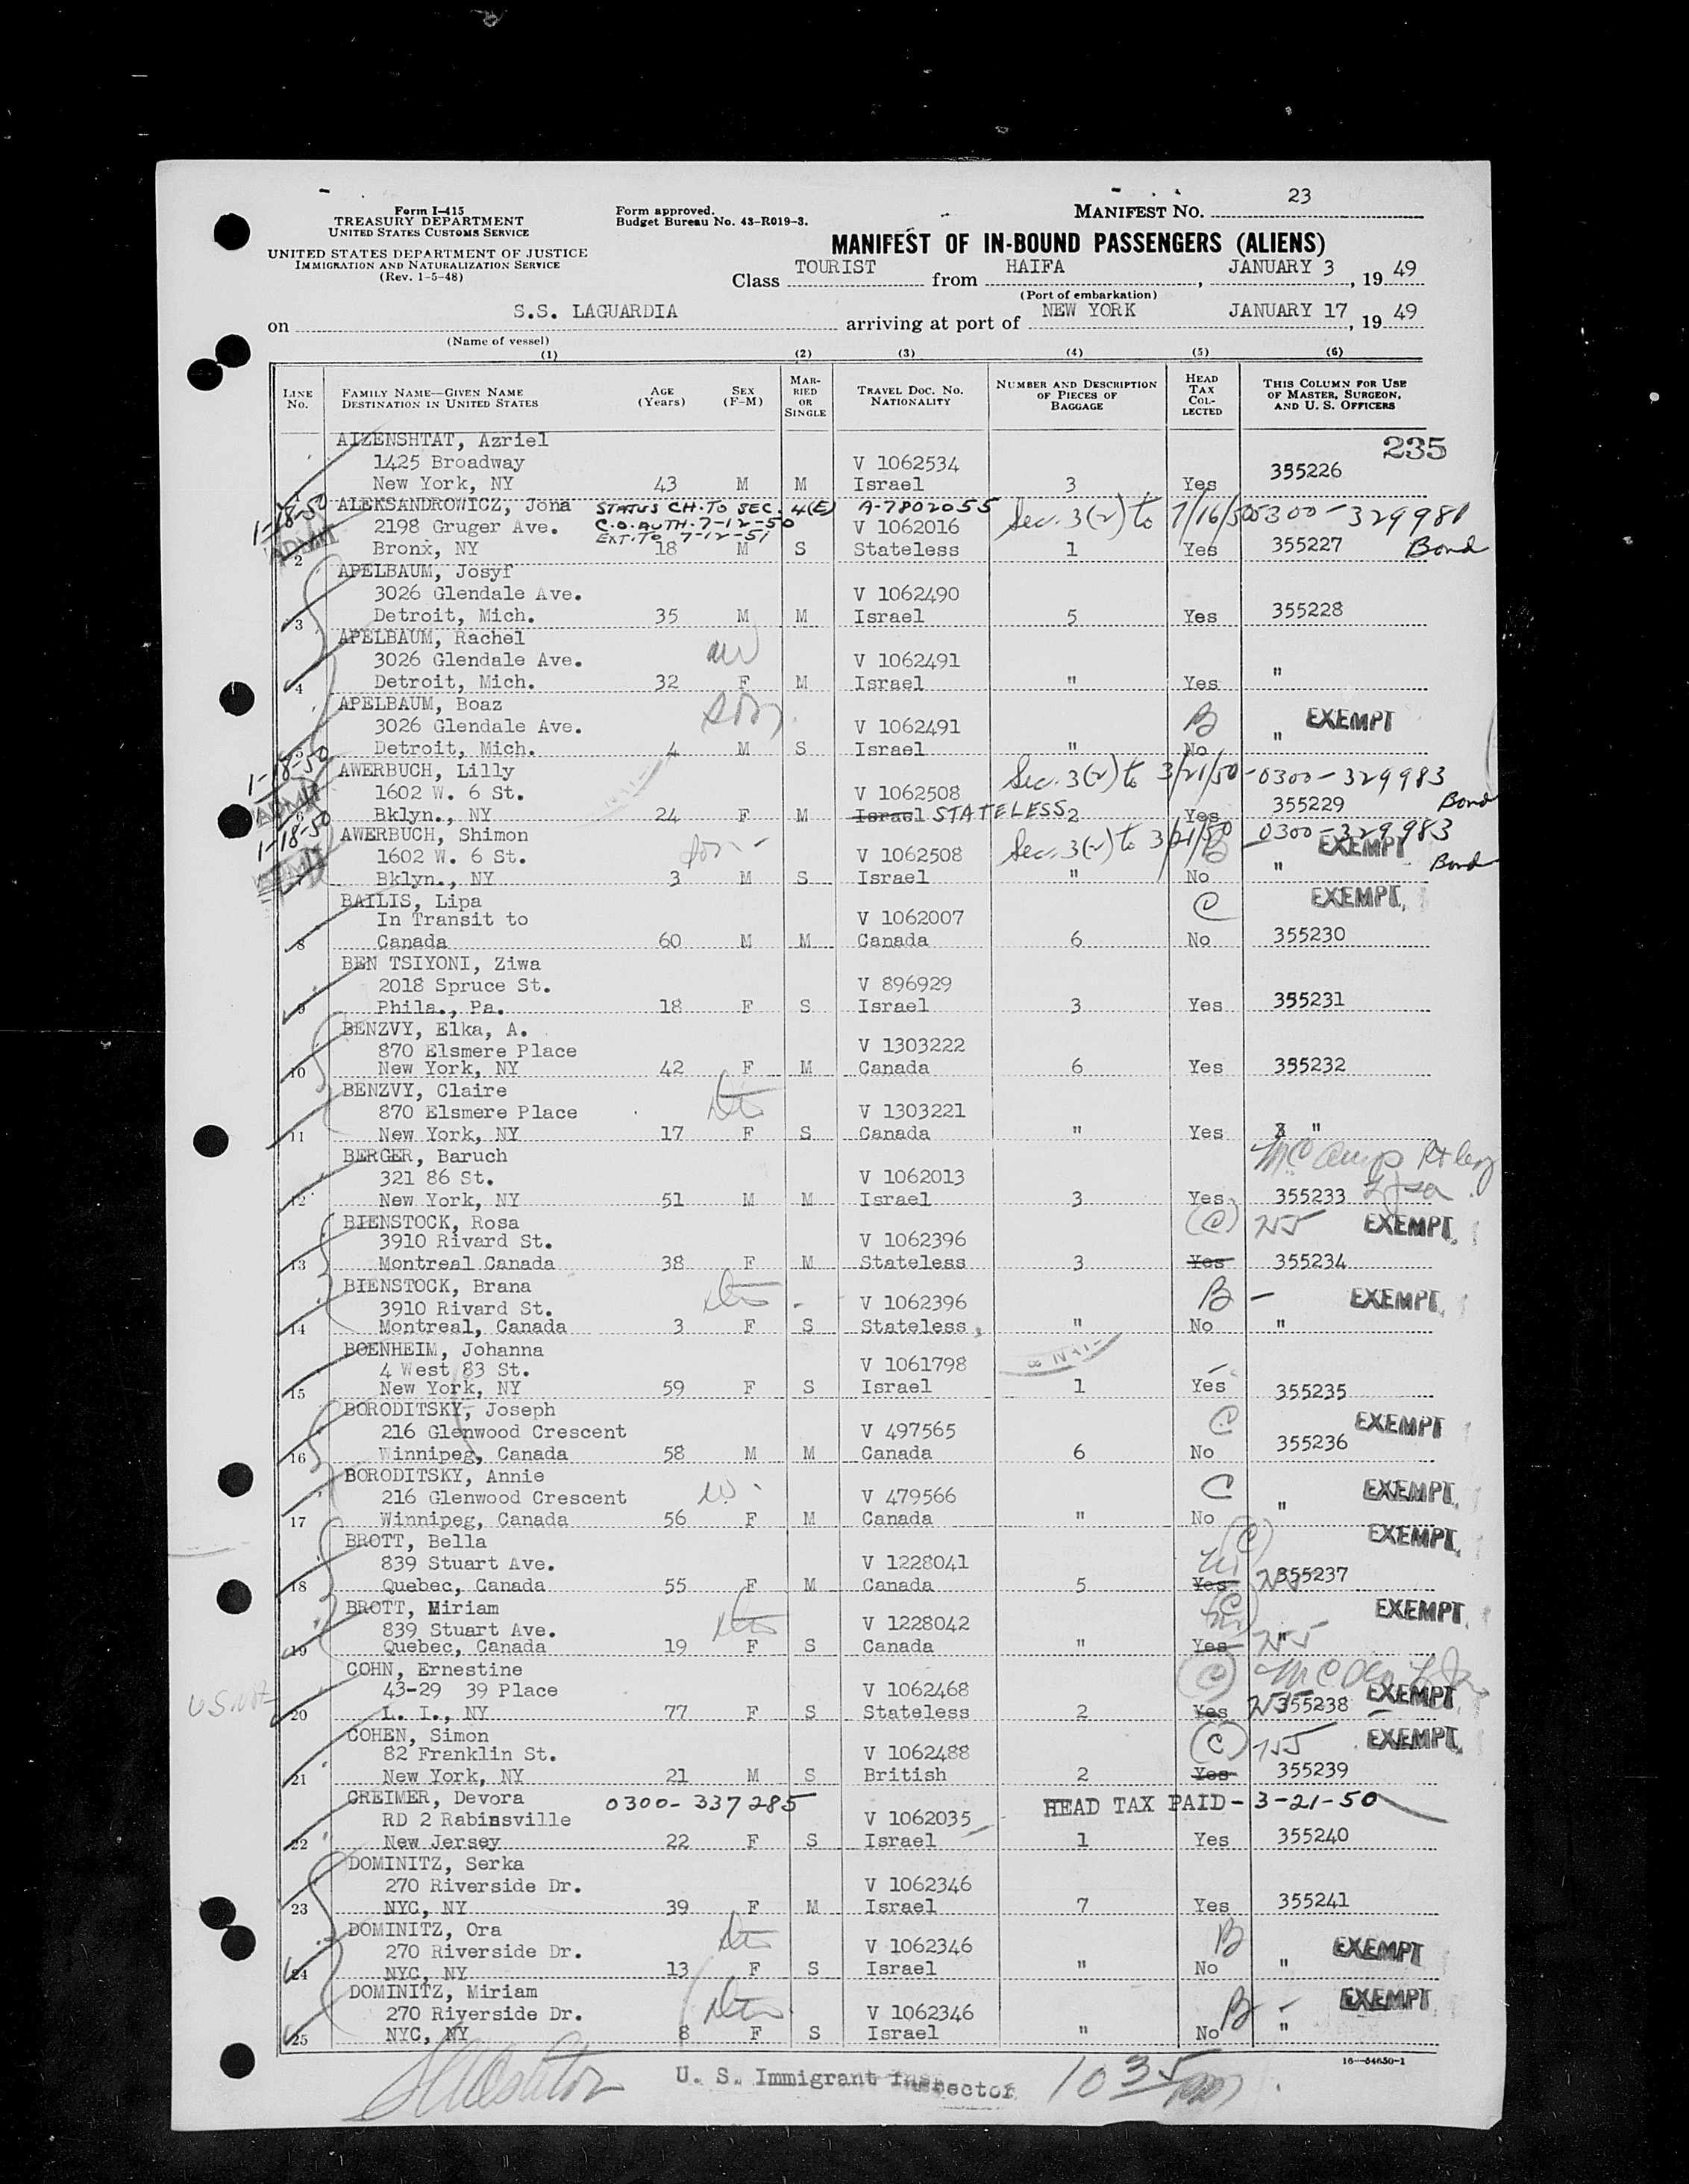 Form I-415
TREASURY DEPARTMENT
UNITED STATES CUSTOMS SERVICE
UNITED STATES DEPARTMENT OF JUSTICE
IMMIGRATION AND NATURALIZATION SERVICE
(Rev. 1-5-48)
Form approved.
Budget Bureau No. 43-R019-3.
MANIFEST NO. 23
MANIFEST OF IN-BOUND PASSENGERS (ALIENS)
Class TOURIST from HAIFA, JANUARY 3, 19 49
(Port of embarkation)
on S.S. LAGUARDIA arriving at port of NEW YORK JANUARY 17, 19 49
(Name of vessel)
(1) (2) (3) (4) (5) (6)
LINE No. FAMILY NAME—GIVEN NAME DESTINATION IN UNITED STATES AGE (Years) SEX (F-M) MARRIED OR SINGLE TRAVEL DOC. NO. NATIONALITY NUMBER AND DESCRIPTION OF PIECES OF BAGGAGE HEAD TAX COLLECTED THIS COLUMN FOR USE OF MASTER, SURGEON, AND U. S. OFFICERS
235
AIZENSHTAT, Azriel
1425 Broadway V 1062534 355226
1 New York, NY 43 M M Israel 3 Yes
1-18-50 ALEKSANDROWICZ, Jona STATUS CH. TO SEC. 4(E) A-7802055 Sec. 3(2) to 7/16/50 0300-329981
ADMIT 2198 Gruger Ave. C.O. AUTH. 7-12-50 V 1062016
EXT. TO 7-12-51
2 Bronx, NY 18 M S Stateless 1 Yes 355227 Bond
APELBAUM, Josyf
3026 Glendale Ave. V 1062490
3 Detroit, Mich. 35 M M Israel 5 Yes 355228
APELBAUM, Rachel
3026 Glendale Ave. V 1062491
4 Detroit, Mich. 32 F M Israel " Yes "
APELBAUM, Boaz son
3026 Glendale Ave. V 1062491 B EXEMPT
5 Detroit, Mich. 4 M S Israel " No "
1-18-50 AWERBUCH, Lilly Sec. 3(2) to 3/21/50 - 0300-329983
ADMIT 1602 W. 6 St. V 1062508
6 Bklyn., NY 24 F M Israel STATELESS 2 Yes 355229 Bond
1-18-50 AWERBUCH, Shimon son - Sec. 3(2) to 3/21/50 0300-329983
ADMIT 1602 W. 6 St. V 1062508 B EXEMPT Bond
7 Bklyn., NY 3 M S Israel " No "
BAILIS, Lipa C EXEMPT.
In Transit to V 1062007
8 Canada 60 M M Canada 6 No 355230
BEN TSIYONI, Ziwa
2018 Spruce St. V 896929
9 Phila., Pa. 18 F S Israel 3 Yes 355231
BENZVY, Elka, A.
870 Elsmere Place V 1303222
10 New York, NY 42 F M Canada 6 Yes 355232
BENZVY, Claire
870 Elsmere Place V 1303221
11 New York, NY 17 F S Canada " Yes "
BERGER, Baruch
321 86 St. V 1062013
12 New York, NY 51 M M Israel 3 Yes 355233
BIENSTOCK, Rosa (C) EXEMPT.
3910 Rivard St. V 1062396
13 Montreal Canada 38 F M Stateless 3 Yes 355234
BIENSTOCK, Brana
3910 Rivard St. V 1062396 B - EXEMPT.
14 Montreal, Canada 3 F S Stateless " No "
BOENHEIM, Johanna
4 West 83 St. V 1061798
15 New York, NY 59 F S Israel 1 Yes 355235
BORODITSKY, Joseph C EXEMPT
216 Glenwood Crescent V 497565
16 Winnipeg, Canada 58 M M Canada 6 No 355236
BORODITSKY, Annie
216 Glenwood Crescent w. V 479566 C EXEMPT.
17 Winnipeg, Canada 56 F M Canada " No "
BROTT, Bella (C) EXEMPT.
839 Stuart Ave. V 1228041
18 Quebec, Canada 55 F M Canada 5 Yes 355237
BROTT, Miriam (C) EXEMPT.
839 Stuart Ave. V 1228042
19 Quebec, Canada 19 F S Canada " Yes "
COHN, Ernestine (C)
43-29 39 Place V 1062468 EXEMPT
20 L. I., NY 77 F S Stateless 2 Yes 355238
COHEN, Simon (C) EXEMPT.
82 Franklin St. V 1062488
21 New York, NY 21 M S British 2 Yes 355239
CREIMER, Devora 0300-337285 HEAD TAX PAID - 3-21-50
RD 2 Rabinsville V 1062035
22 New Jersey 22 F S Israel 1 Yes 355240
DOMINITZ, Serka
270 Riverside Dr. V 1062346
23 NYC, NY 39 F M Israel 7 Yes 355241
DOMINITZ, Ora
270 Riverside Dr. V 1062346 B EXEMPT
24 NYC, NY 13 F S Israel " No "
DOMINITZ, Miriam
270 Riverside Dr. V 1062346 B - EXEMPT
25 NYC, NY 8 F S Israel " No "
16—54650-1
U. S. Immigrant Inspector 1035